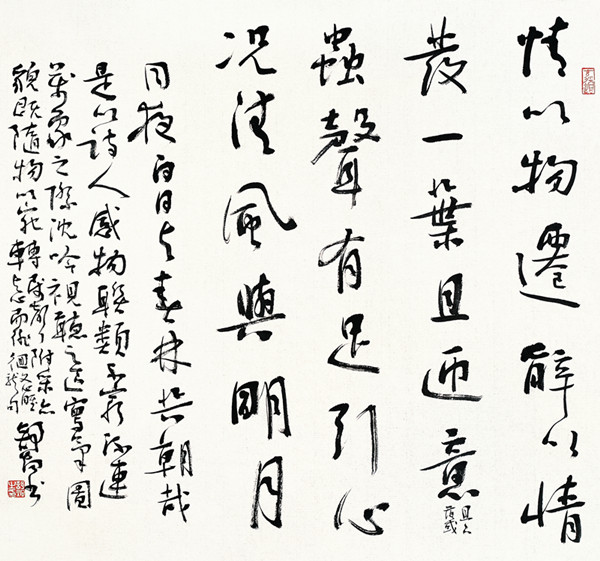 情以物遷辭以情
發一葉且迎意
且下
落或
蟲聲有足引心
况清風與明月
同夜白日与春林共朝哉
是以詩人感物聯類不窮流連
萬象之際沈吟視聽之區寫氣圖
貌既隨物以宛轉屬聲附采亦
心而徘徊文心雕龍句
書